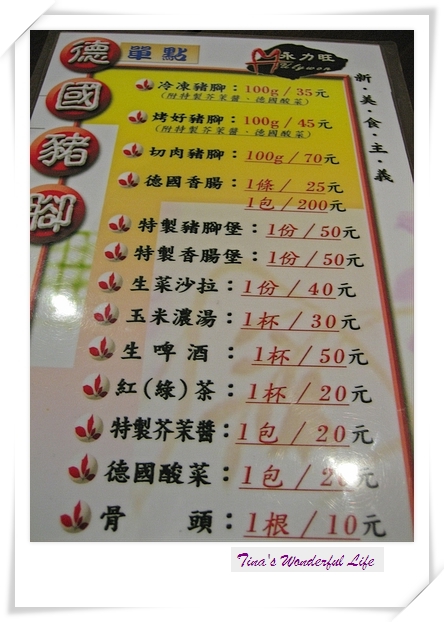 德國豬腳
單點
永力旺
新·美·食·主·義
冷凍豬腳：100g／35元
(附特製芥茉醬、德國酸菜)
烤好豬腳：100g／45元
(附特製芥茉醬、德國酸菜)
切肉豬腳：100g／70元
德國香腸：1條／25元
1包／200元
特製豬腳堡：1份／50元
特製香腸堡：1份／50元
生菜沙拉：1份／40元
玉米濃湯：1杯／30元
生啤酒：1杯／50元
紅(綠)茶：1杯／20元
特製芥茉醬：1包／20元
德國酸菜：1包／20元
骨頭：1根／10元
Tina's Wonderful Life